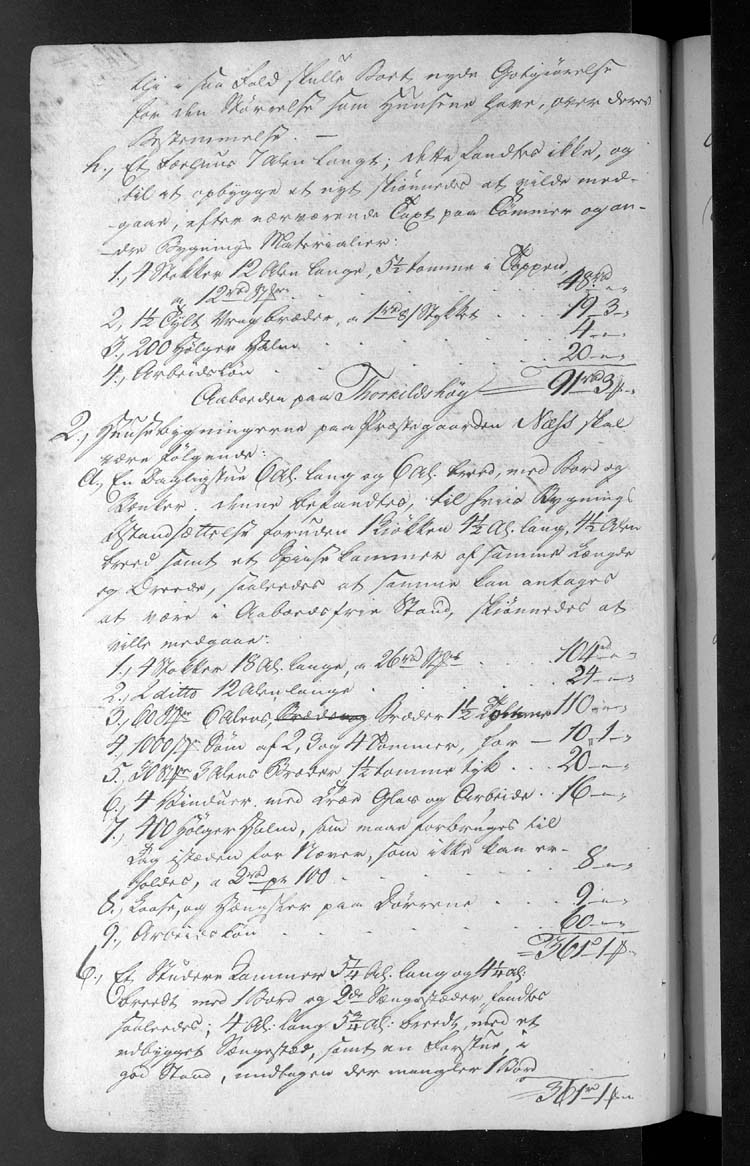 tig i saa Fald skulle Bort nyde Godtgiørelse
for den Størrelse som Huusene have, over deres
Bestemmelse. —
h., Et Fæehuus 7 Alen langt; dette fandtes ikke, og
til at opbygge et nyt skiønnedes at vilde med-
gaae, efter nærværende Taxt paa Tømmer og an-
dre Bygnings Materialier:
1., 4 Stokker 12 Alen lange, 5½ tomme i Toppen,
a 12 rd . . . 48 rd „ „
2, 1½ Tylt Vragbræder, a 1 rd Stykket . . 19 „ 3 „
3., 200 Følger Halm . . . 4 „ „
4., Arbeidsløn . . . 20 „ „
Aaboden paa Thorkildshøg = 91 rd 3 „
2., Huusebygningerne paa Præstegaarden Næss skal
være følgende:
a., En Dagligstue 6 Al. lang og 6 Al. breed, med Bord og
Bænker. denne befandtes, til hvis Bygnings
Istandsættelse foruden 1 Kiøkken 4½ Al. lang, 4½ Alen
breed samt et Spiisekammer af samme Længde
og Breede, saaledes at samme kan antages
at være i Aabodsfrie Stand, skiønnedes at
ville medgaae:
1., 4 Stokker 18 Al. lange, a 26 rd . . 104 rd „ „
2., 2 ditto 12 Alen lange . . . 24 „ „
3., 60 6 Alens Bræder 1½ 110 „ „
4, 1000 Søm af 2, 3 og 4 Tommer, for — 10 „ 1 „
5., 30 3 Alens Bræder, 1½ tomme tyk . . 20 „ „
6., 4 Vinduer med Træe Glas og Arbeide . . 16 „ „
7., 400 Følger Halm, som maae forbruges til
Tag istæden for Næver, som ikke kan er-
holdes, a 2 rd pr 100 . . . 8 „ „
8., Laase, og Hængsler paa Dørrene . . . 9 „ „
9., Arbeidsløn . . . 60 „ „
= 361 „ 1 „
b., Et Studere Kammer 5¼ Al. lang og 4¼ Al.
breedt med 1 Bord og 2de Sængestæder, fandtes
saaledes; 4 Al. lang 5¾ Al: breedt, med et
udbygget Sængestæd, samt en Forstue, i
god Stand, undtagen der mangler 1 Bord
361 rd 1 „